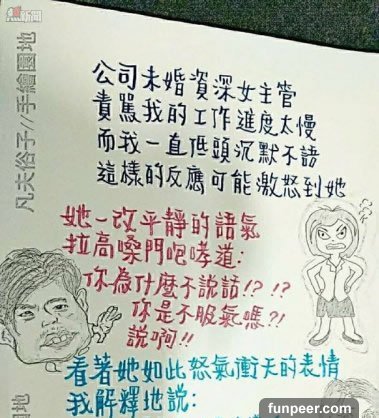 焦新聞
凡夫俗子//手繪園地
公司未婚資深女主管
責罵我的工作進度太慢
而我一直低頭沉默不語
這樣的反應可能激怒到她
她一改平靜的語氣
拉高嗓門咆哮道:
你為什麼不說話!? !?
你是不服氣嗎?!
說啊!!
看著她如此怒氣衝天的表情
我解釋地說:
園地
funpeer.com